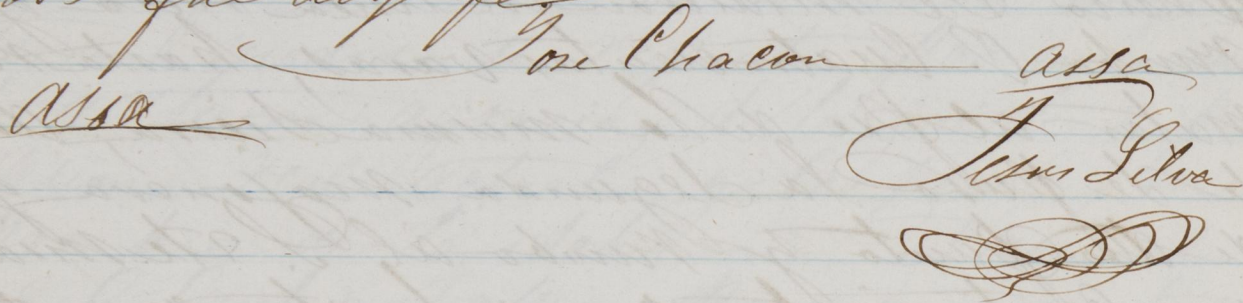 que doy fe
Jose Chacon assa
assa
Jesus Silva